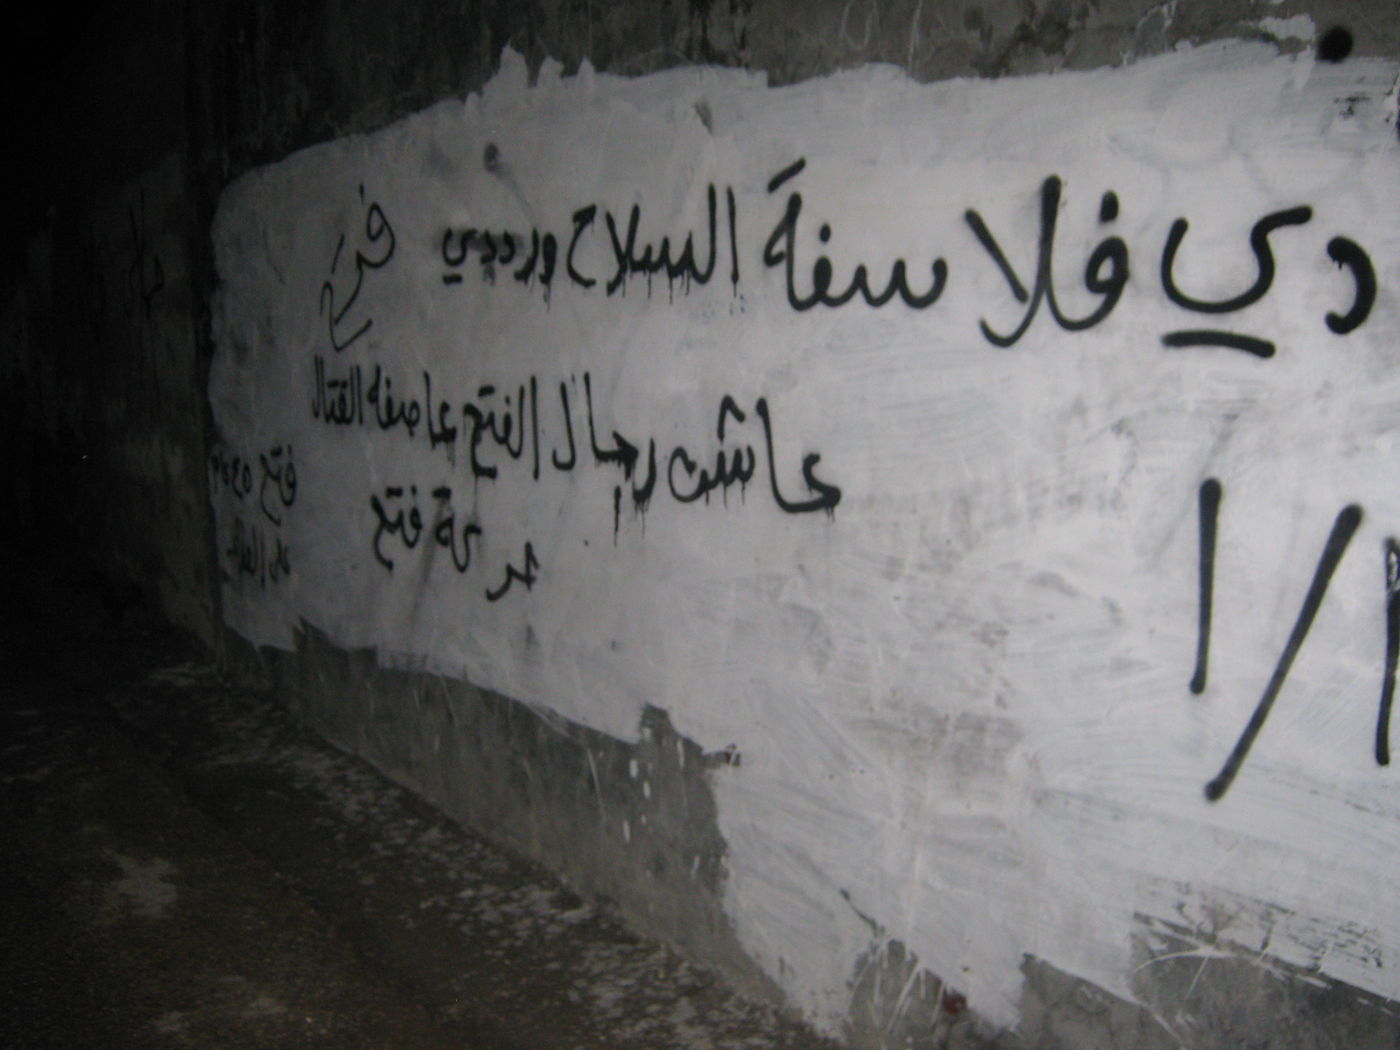 دي فلاسفة السلاح ورددي
عاشت رجال الفتح عاصفة القتال
حركة فتح
فتح
1/1